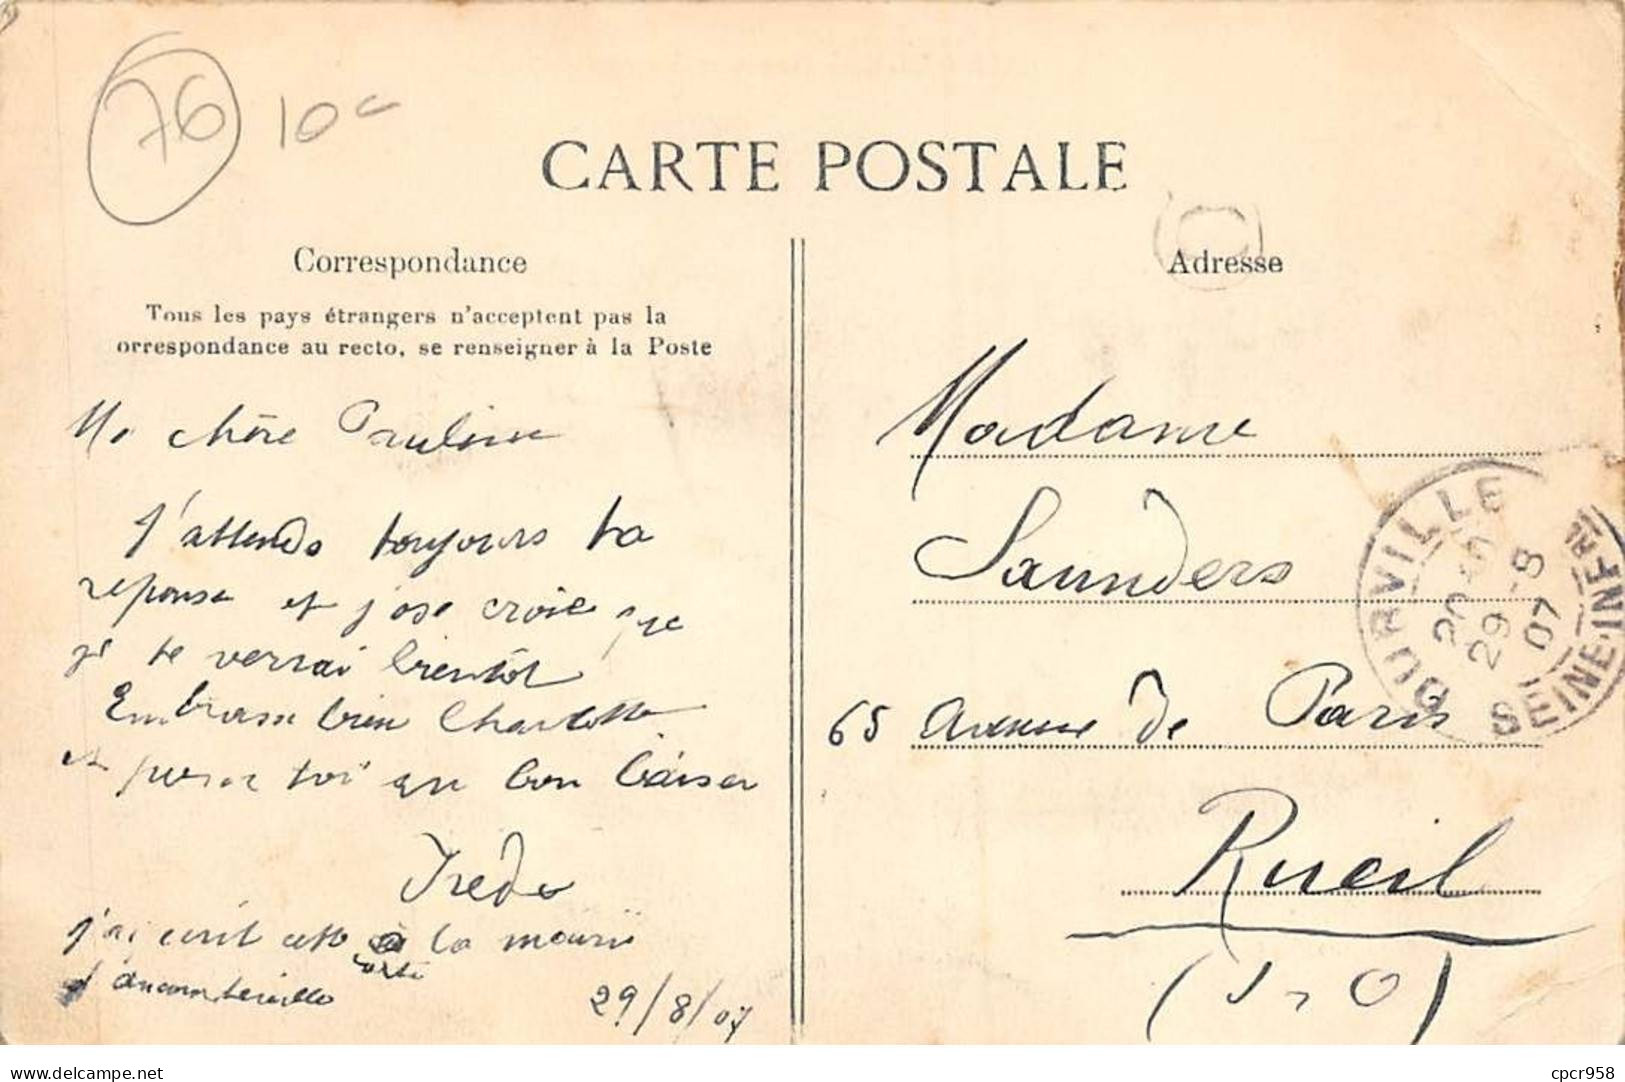 76 10c
CARTE POSTALE
Correspondance
Tous les pays étrangers n'acceptent pas la
orrespondance au recto, se renseigner à la Poste
Ma chère Pauline
J'attends toujours ta
reponse et j'ose croire que
je te verrai bientôt
Embrasse bien Charlotte
et pour toi un bon baiser
j'ai écrit cette carte à la mairie
d'ancourteville
29/8/07
Adresse
Madame
Saunders
65 Avenue de Paris
Rueil
(S, O)
OURVILLE
20
29-8
07
SEINE-INFRE
delcampe.net
cpcr958